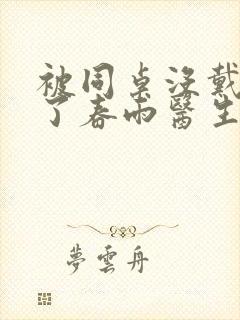 被同桌没戴
了春雨醫生
夢雲舟